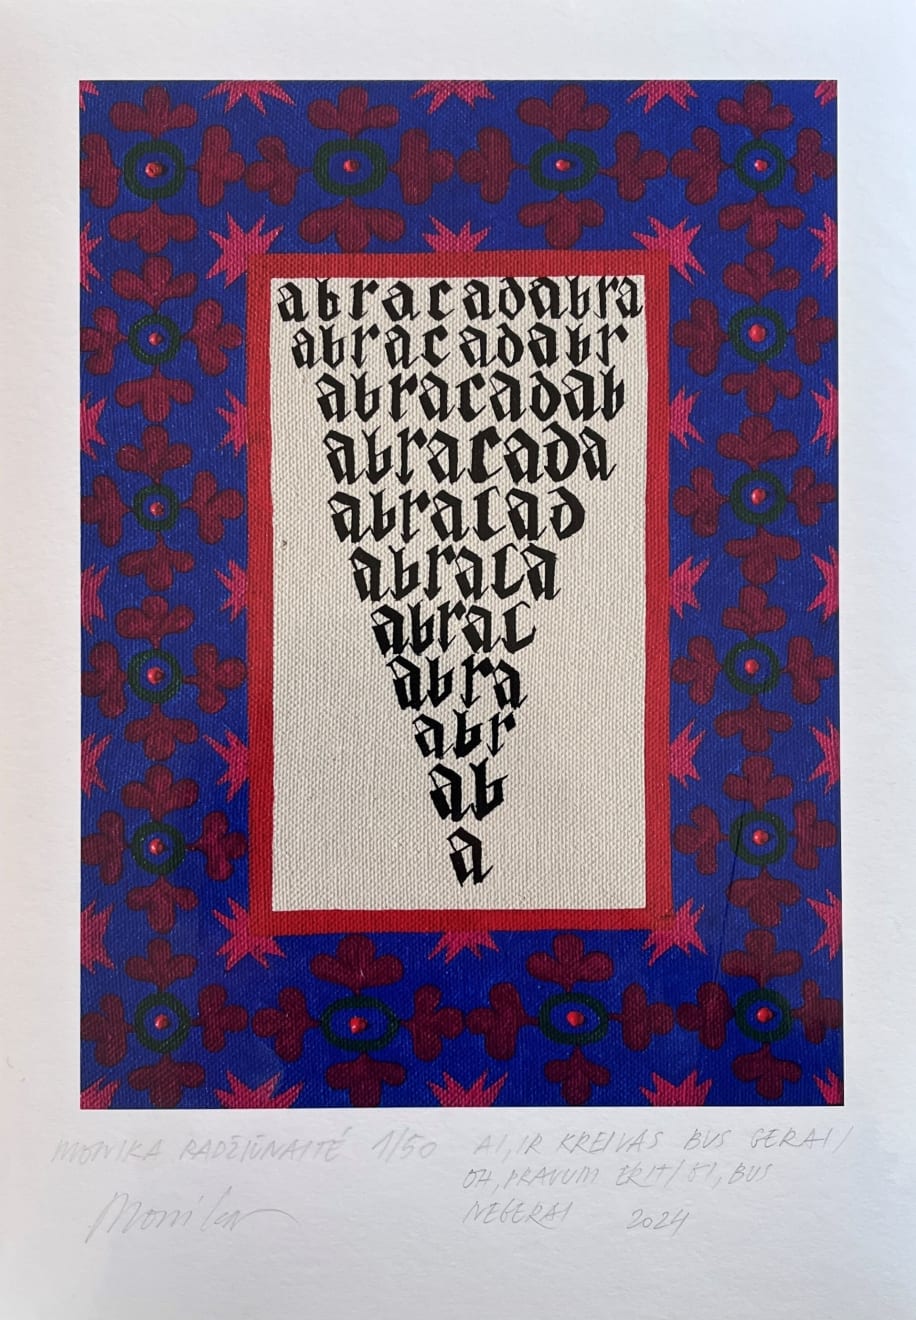 abracadabra
abracadabr
abracadab
abracada
abracad
abraca
abrac
abra
abr
ab
a
MONIKA RADŽIŪNAITĖ 1/50 AI, IR KREIVAS BUS GERAI/
OH, PRAVUM ERIT/ OI, BUS
NEGERAI 2024
Monika